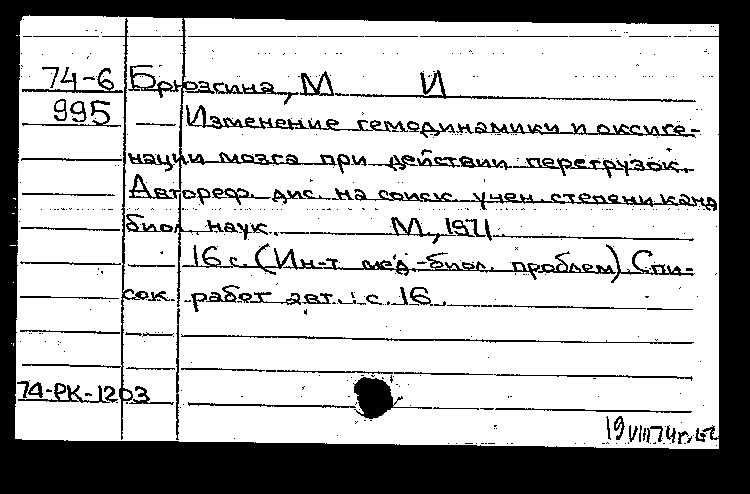 74-6 Брюзгина, М И
995 Изменение гемодинамики и оксиге-
нации мозга при действии перегрузок.
Автореф. дис. на соиск. учен. степени канд
биол. наук. М., 1971
16 с. (Ин-т мед.-биол. проблем). Спи-
сок работ авт.: с. 16.
74-РК-1203
19 VIII 74 г.